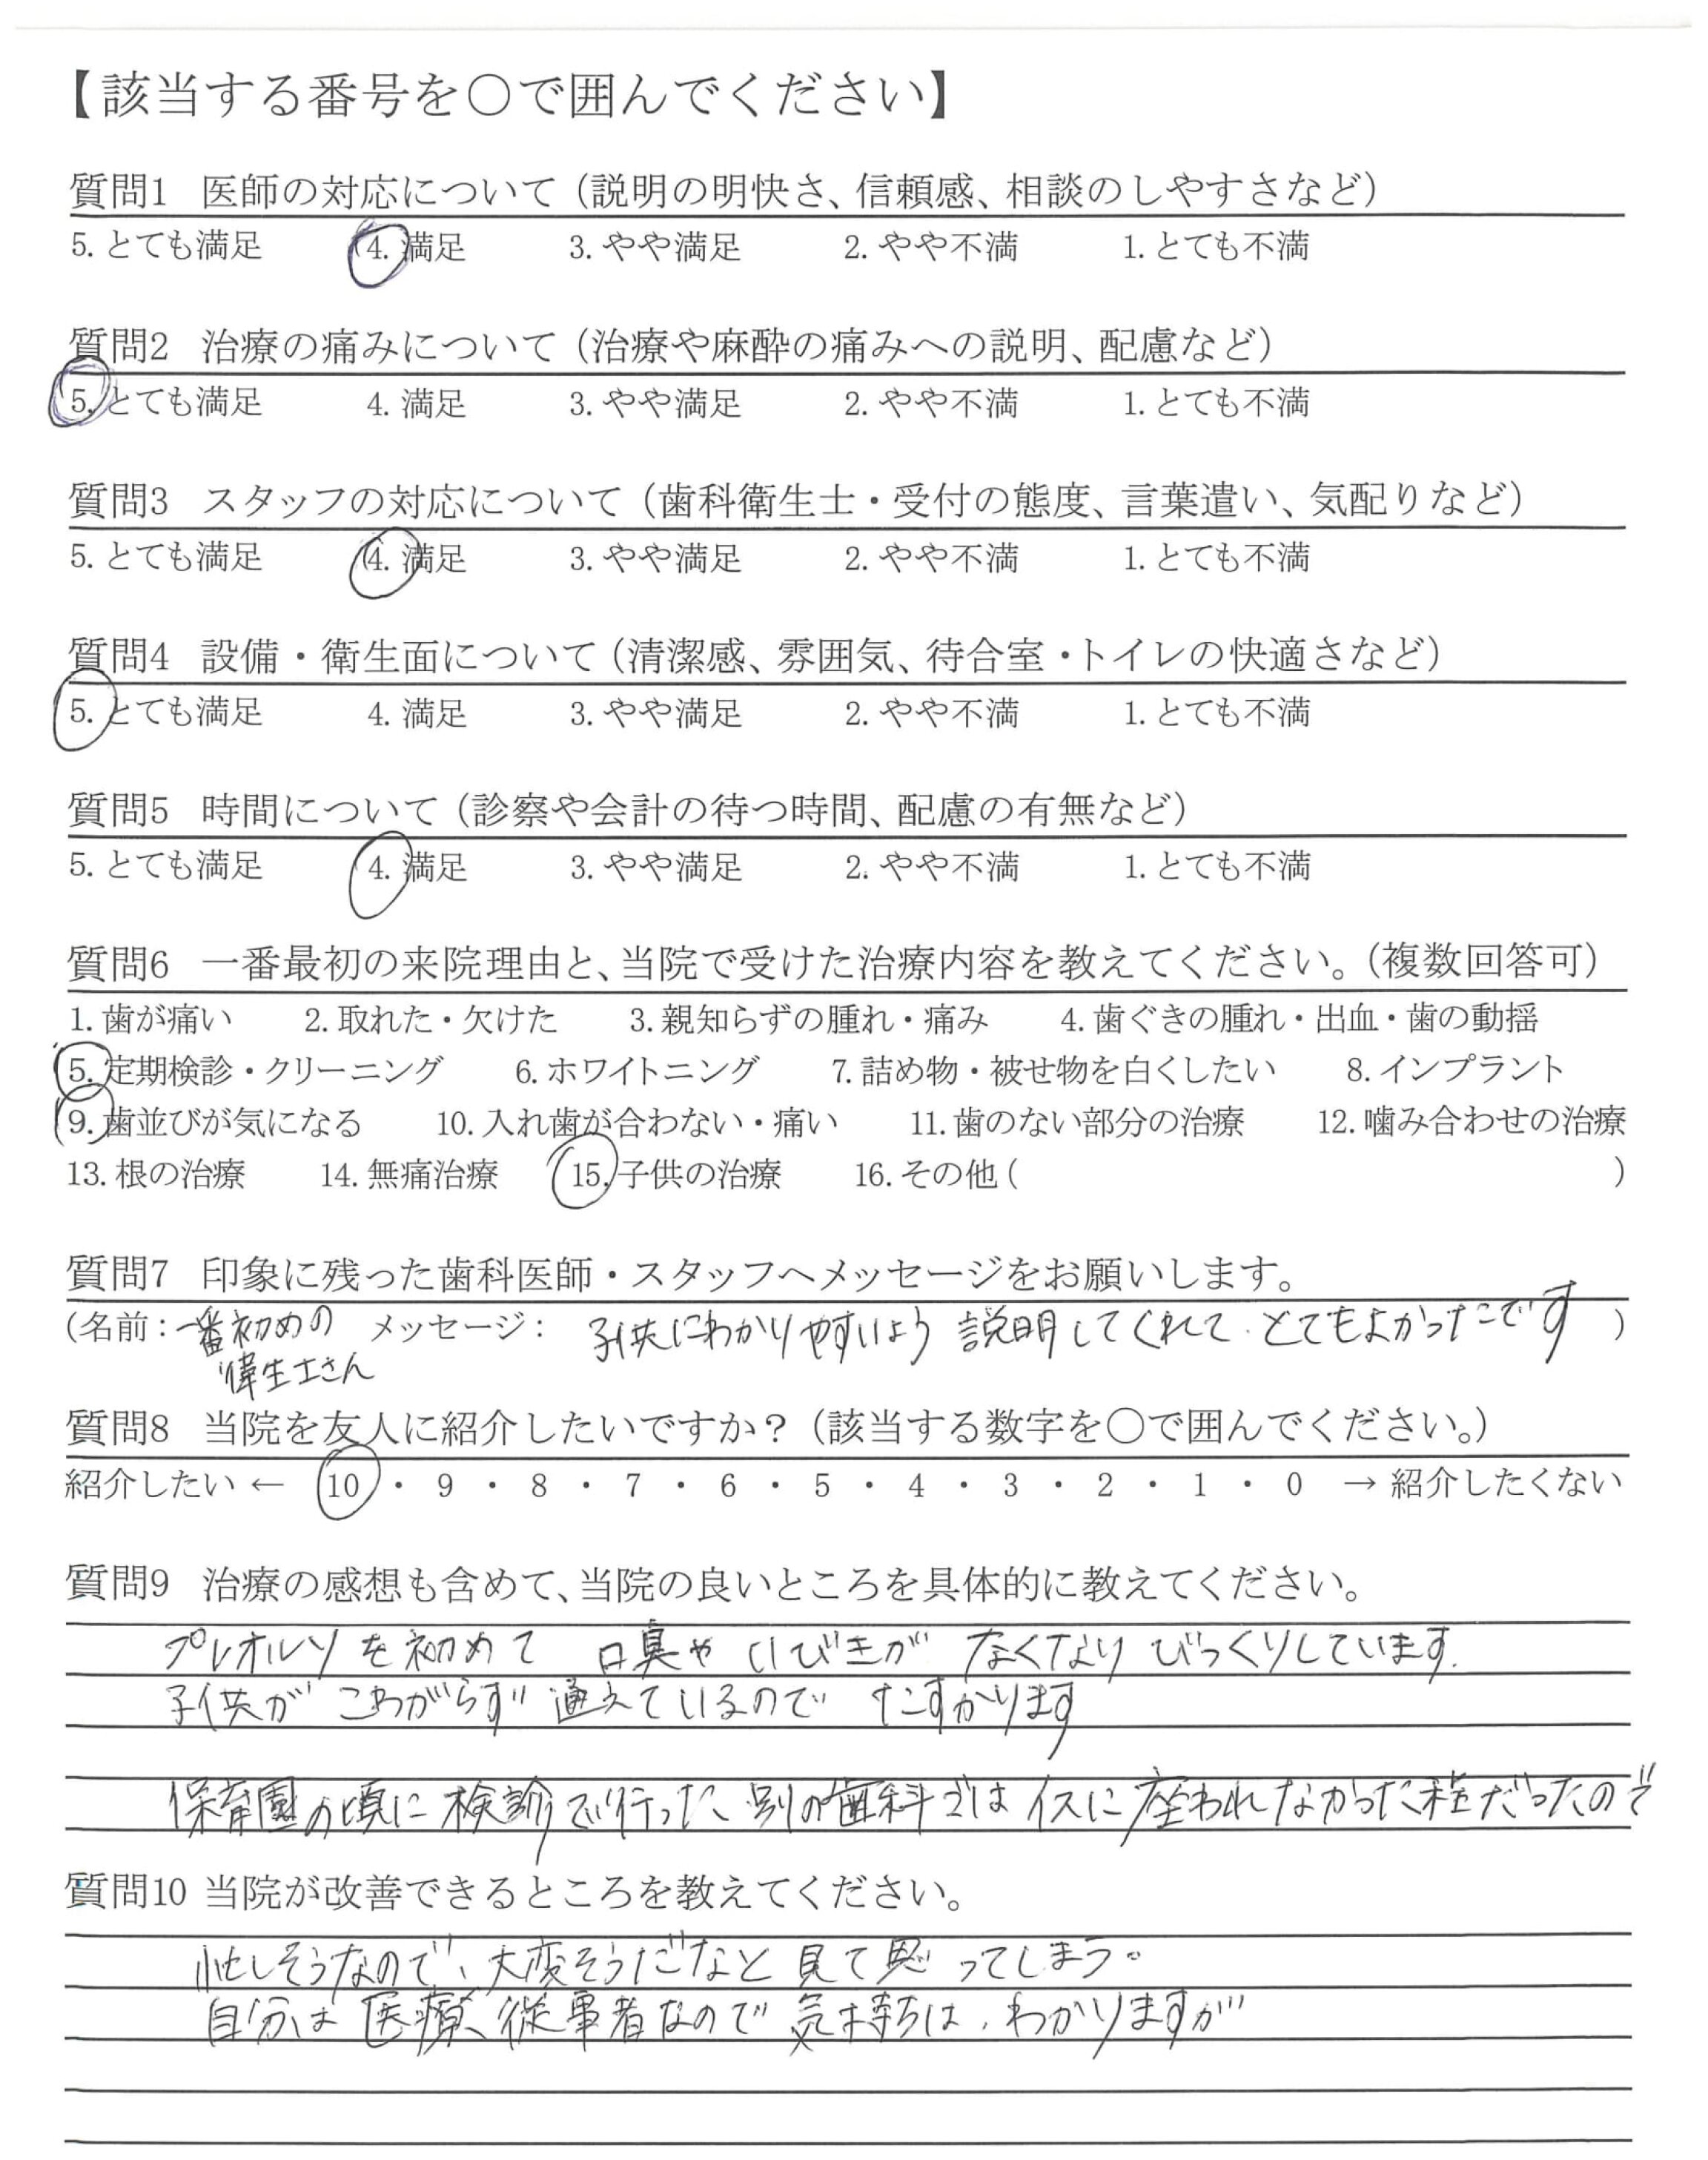 【該当する番号を○で囲んでください】
質問1 医師の対応について（説明の明快さ、信頼感、相談のしやすさなど）
5. とても満足 4. 満足 3. やや満足 2. やや不満 1. とても不満
質問2 治療の痛みについて（治療や麻酔の痛みへの説明、配慮など）
5. とても満足 4. 満足 3. やや満足 2. やや不満 1. とても不満
質問3 スタッフの対応について（歯科衛生士・受付の態度、言葉遣い、気配りなど）
5. とても満足 4. 満足 3. やや満足 2. やや不満 1. とても不満
質問4 設備・衛生面について（清潔感、雰囲気、待合室・トイレの快適さなど）
5. とても満足 4. 満足 3. やや満足 2. やや不満 1. とても不満
質問5 時間について（診察や会計の待つ時間、配慮の有無など）
5. とても満足 4. 満足 3. やや満足 2. やや不満 1. とても不満
質問6 一番最初の来院理由と、当院で受けた治療内容を教えてください。（複数回答可）
1. 歯が痛い 2. 取れた・欠けた 3. 親知らずの腫れ・痛み 4. 歯ぐきの腫れ・出血・歯の動揺
5. 定期検診・クリーニング 6. ホワイトニング 7. 詰め物・被せ物を白くしたい 8. インプラント
9. 歯並びが気になる 10. 入れ歯が合わない・痛い 11. 歯のない部分の治療 12. 噛み合わせの治療
13. 根の治療 14. 無痛治療 15. 子供の治療 16. その他（ ）
質問7 印象に残った歯科医師・スタッフへメッセージをお願いします。
（名前：一番初めの メッセージ： 子供にわかりやすいよう 説明してくれて とてもよかったです ）
衛生士さん
質問8 当院を友人に紹介したいですか？（該当する数字を○で囲んでください。）
紹介したい ← 10 ・ 9 ・ 8 ・ 7 ・ 6 ・ 5 ・ 4 ・ 3 ・ 2 ・ 1 ・ 0 → 紹介したくない
質問9 治療の感想も含めて、当院の良いところを具体的に教えてください。
プレオルソを初めて 口臭や いびきが なくなり びっくりしています.
子供が こわがらず 通えているので たすかります
保育園の頃に検診で行った、別の歯科ではイスに座われなかった程だったので
質問10 当院が改善できるところを教えてください。
忙しそうなので、大変そうだなと 見て思ってしまう。
自分は 医療従事者なので 気持ちは、わかりますが